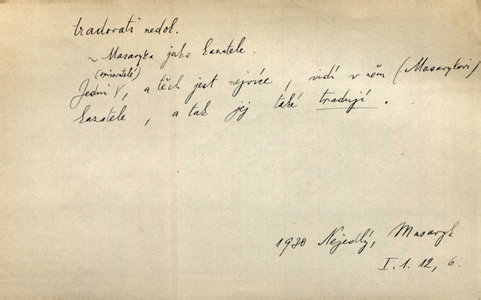 tradovati nedok.
~ Masaryka jako kazatele.
(spisovatelé)
Jedni V, a těch jest nejvíce, vidí v něm (Masarykovi)
kazatele, a tak jej také tradují.
1930 Nejedlý, Masaryk
I. 1. 12, 6.